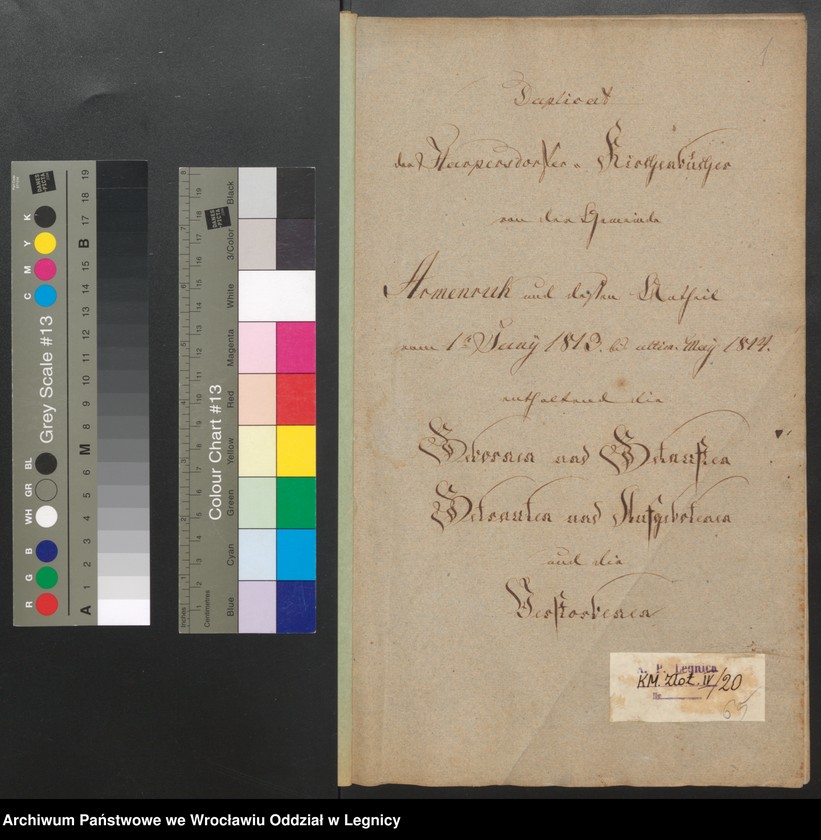 Duplicat
des Harpersdorfer Kirchenbuches
von der Gemeinde
Armenruh und dessen Antheil
vom 1t Juny 1813. bis ultim. May 1814.
enthaltend die
Gebornen und Getauften
Getrauten und Aufgebotenen
und die
Verstorbenen
A. P. Legnica
KM. Złoż. IV/20
Nr.
65
1
Grey Scale #13
A 1 2 3 4 5 6 M 8 9 10 11 12 13 14 15 B 17 18 19
R G B WH GR BL C M Y K
DANES PICTA .COM
Colour Chart #13
Blue Cyan Green Yellow Red Magenta White 3/Color Black
Inches
Centimetres
DANES PICTA .COM
Archiwum Państwowe we Wrocławiu Oddział w Legnicy